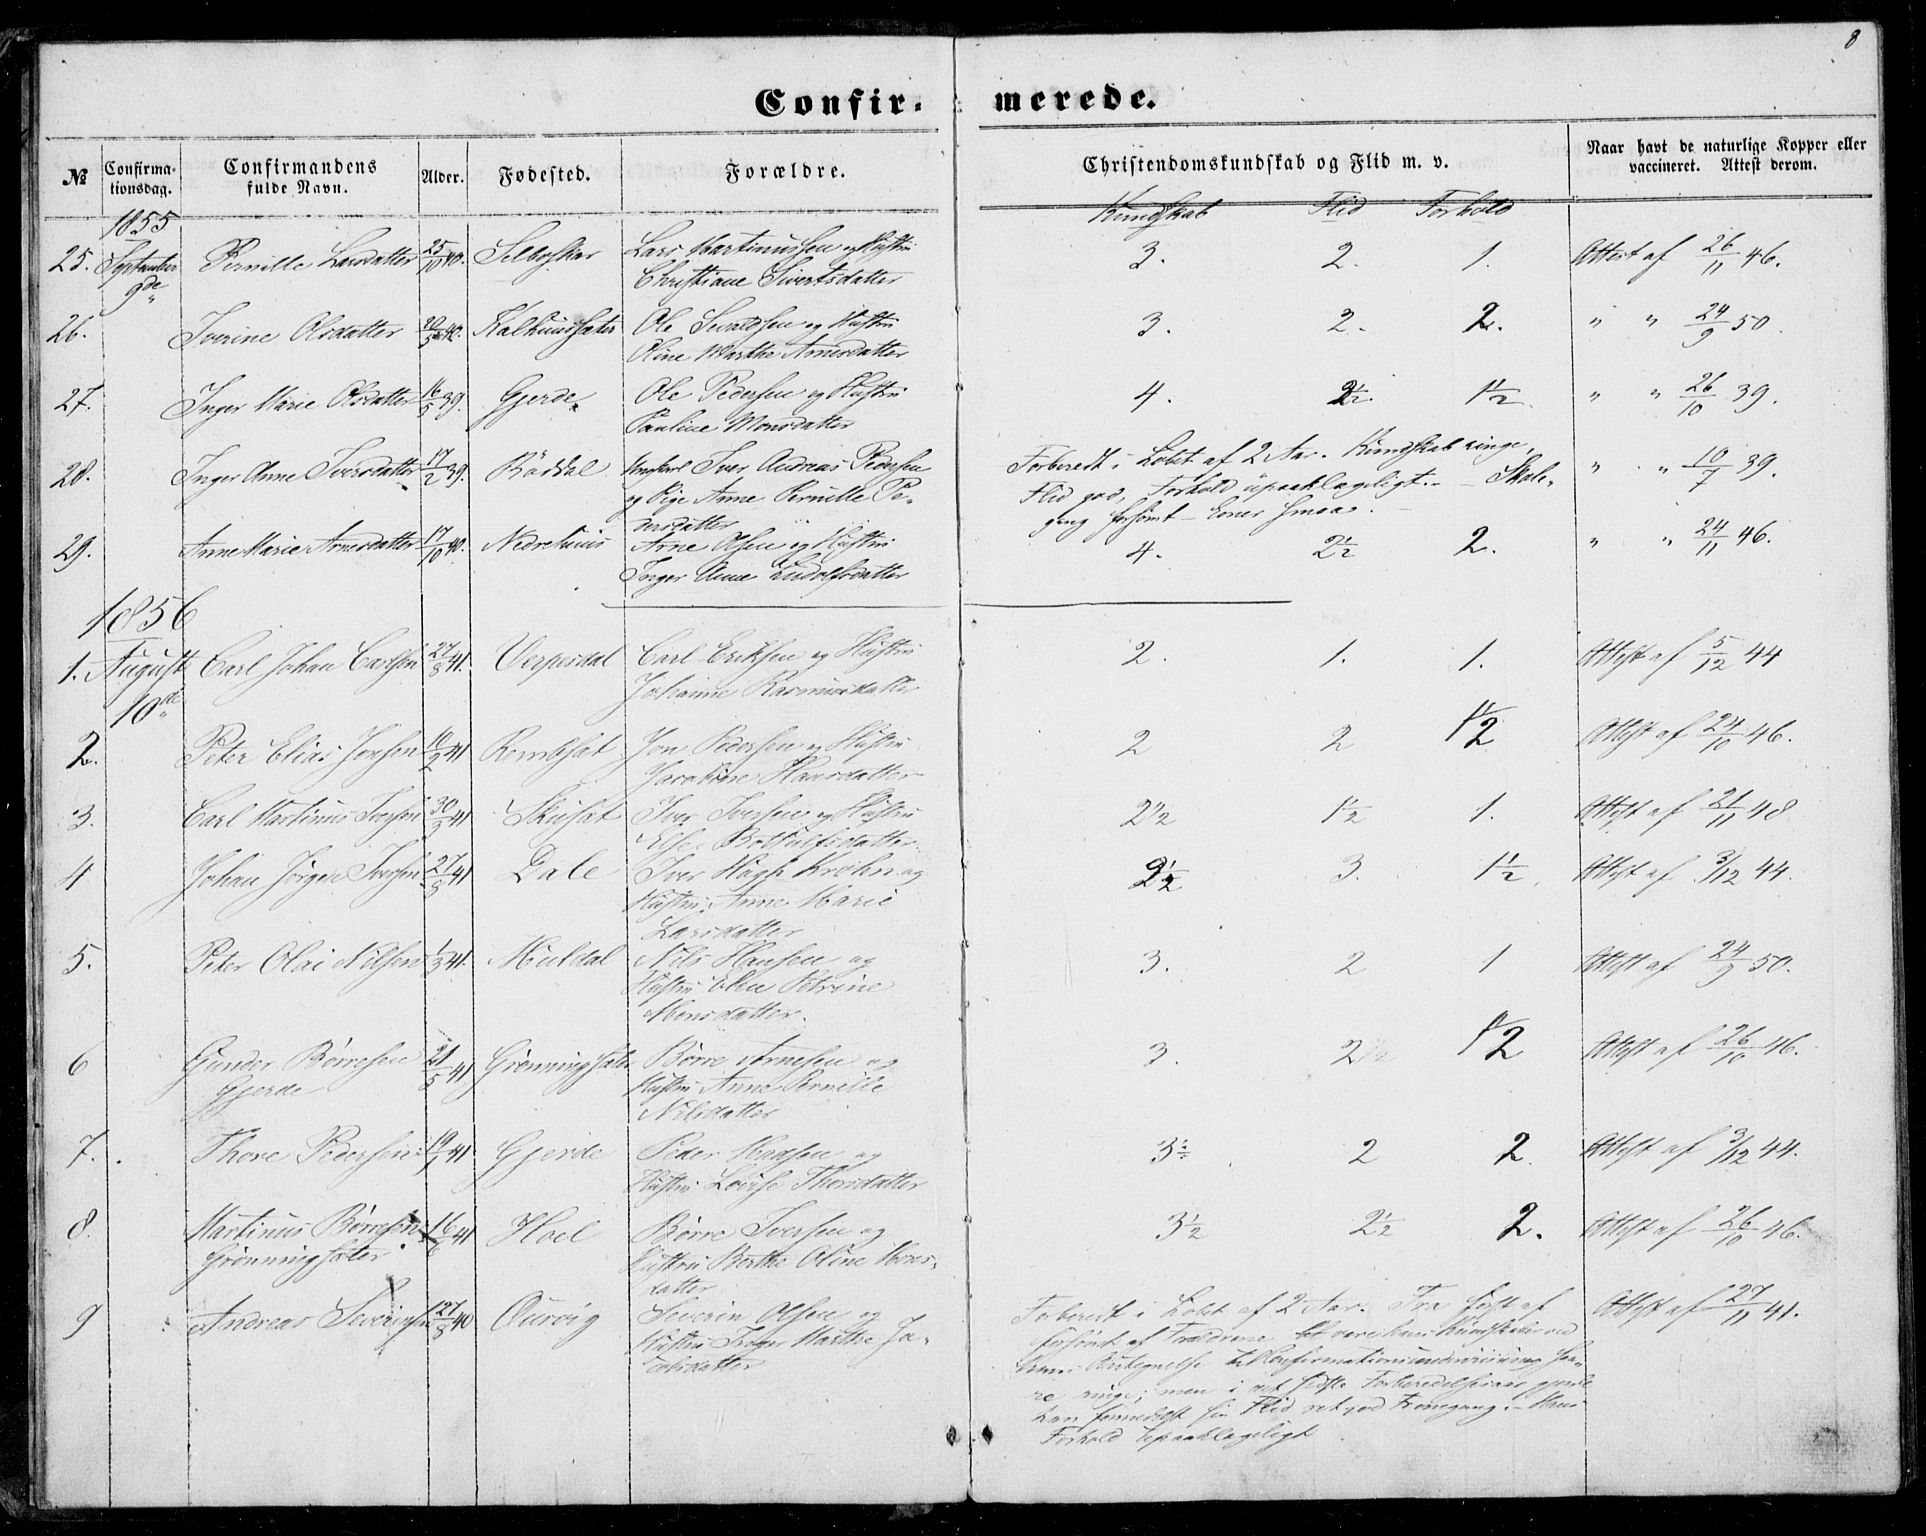 8
Confir- merede.
№ Confirma-tionsdag. Confirmandens fulde Navn. Alder. Fødested. Forældre. Christendomskundskab og Flid m. v. Naar havt de naturlige Kopper eller vaccineret. Attest derom.
1855 Kundskab Flid Forhold
25. September 9de Pernille Larsdatter 25/10 40. Selboskar Lars Martinussen og Hustru 3. 2. 1. Attest af 26/11 46.
Christiane Sivertsdatter
26. Iverine Olsdatter 40. Ole Sevaldsen og Hustru 3. 2. 2. " " 24/9 50.
Oline Marthe Arnesdatter
27. Inger Marie Olsdatter 16/5 39. Gjerde. Ole Pedersen og Hustru 4. 2½. 1½. " " 26/10 39.
Pauline Monsdatter
28. Inger Anne Iversdatter 17/2 39. Röddal Iver Andreas Pedersen Forberedt i Løbet af 2 Aar. Kundskab ringe, " " 10/7 39.
og Pige Anne Pernille Pe- Flid god, Forhold upaaklageligt. - Skole-
dersdatter gang forsömt - Evner smaa.
29. Anne Marie Arnesdatter 17/10 40. Nedrehuus Arne Olsen og Hustru 4. 2½ 2. " " 24/11 46.
Inger Anne Ludolfsdatter
1856
1. August 10de Carl Johan Carlsen 27/8 41. Verpesdal Carl Eriksen og Hustru 2. 1. 1. Attest af 5/12 44
Johanne Rasmusdatter
2. Peter Elias Jonsen 41 Remksæt Jon Pedersen og Hustru 2 2 1½ Attest af 24/10 46.
Jacobine Hansdatter
3. Carl Martinus Iversen 30/3 41 Skusæt Iver Iversen og Hustru 2½ 1½ 1. Attest af 21/11 48
Else Bothulfsdatter
4 Johan Jörgen Iversen 27/8 41 Dale Iver Hagh Krohn og 2½ 3. 1½. Attest af 3/12 44.
Hustru Anne Marie
Larsdatter
5. Peter Olai Nilsen 1/3 41. Muldal Nils Hansen og 3. 2 1 Attest af 24/9 50.
Hustru Elen Petrine
Monsdatter.
6 Gunder Børresen 21/5 41 Grønningsæter Børre Arnesen og 3. 2 1½ Attest af 26/10 46.
Gjerde Hustru Anne Pernille
Nilsdatter
7. Thore Pedersen 41 Gjerde Peder Madsen og 3½ 2 2. Attest af 3/12 44.
Hustru Lovise Thorsdatter
8. Martinus Børresen 16/6 41 Hoel Børre Iversen og 3½ 2½ 2. Attest af 26/10 46.
Grönningsæter Hustru Berthe Oline Mons-
datter
9 Andreas Severinsen 27/8 40 Ourvig Severin Olsen og Forberedt i Løbet af 2 Aar. Fra först af Attest af 27/11 41.
Hustru Inger Marthe Ja- forsömt af Forældrene vare hans Kundskaber ved
cobsdatter hans Antegnelse til Confirmationsundervisning saa-
re ringe; men i det sidste Forberedelsesaar gjorde
han formedelst sin Flid ret god Fremgang. - Hans
Forhold upaaklageligt